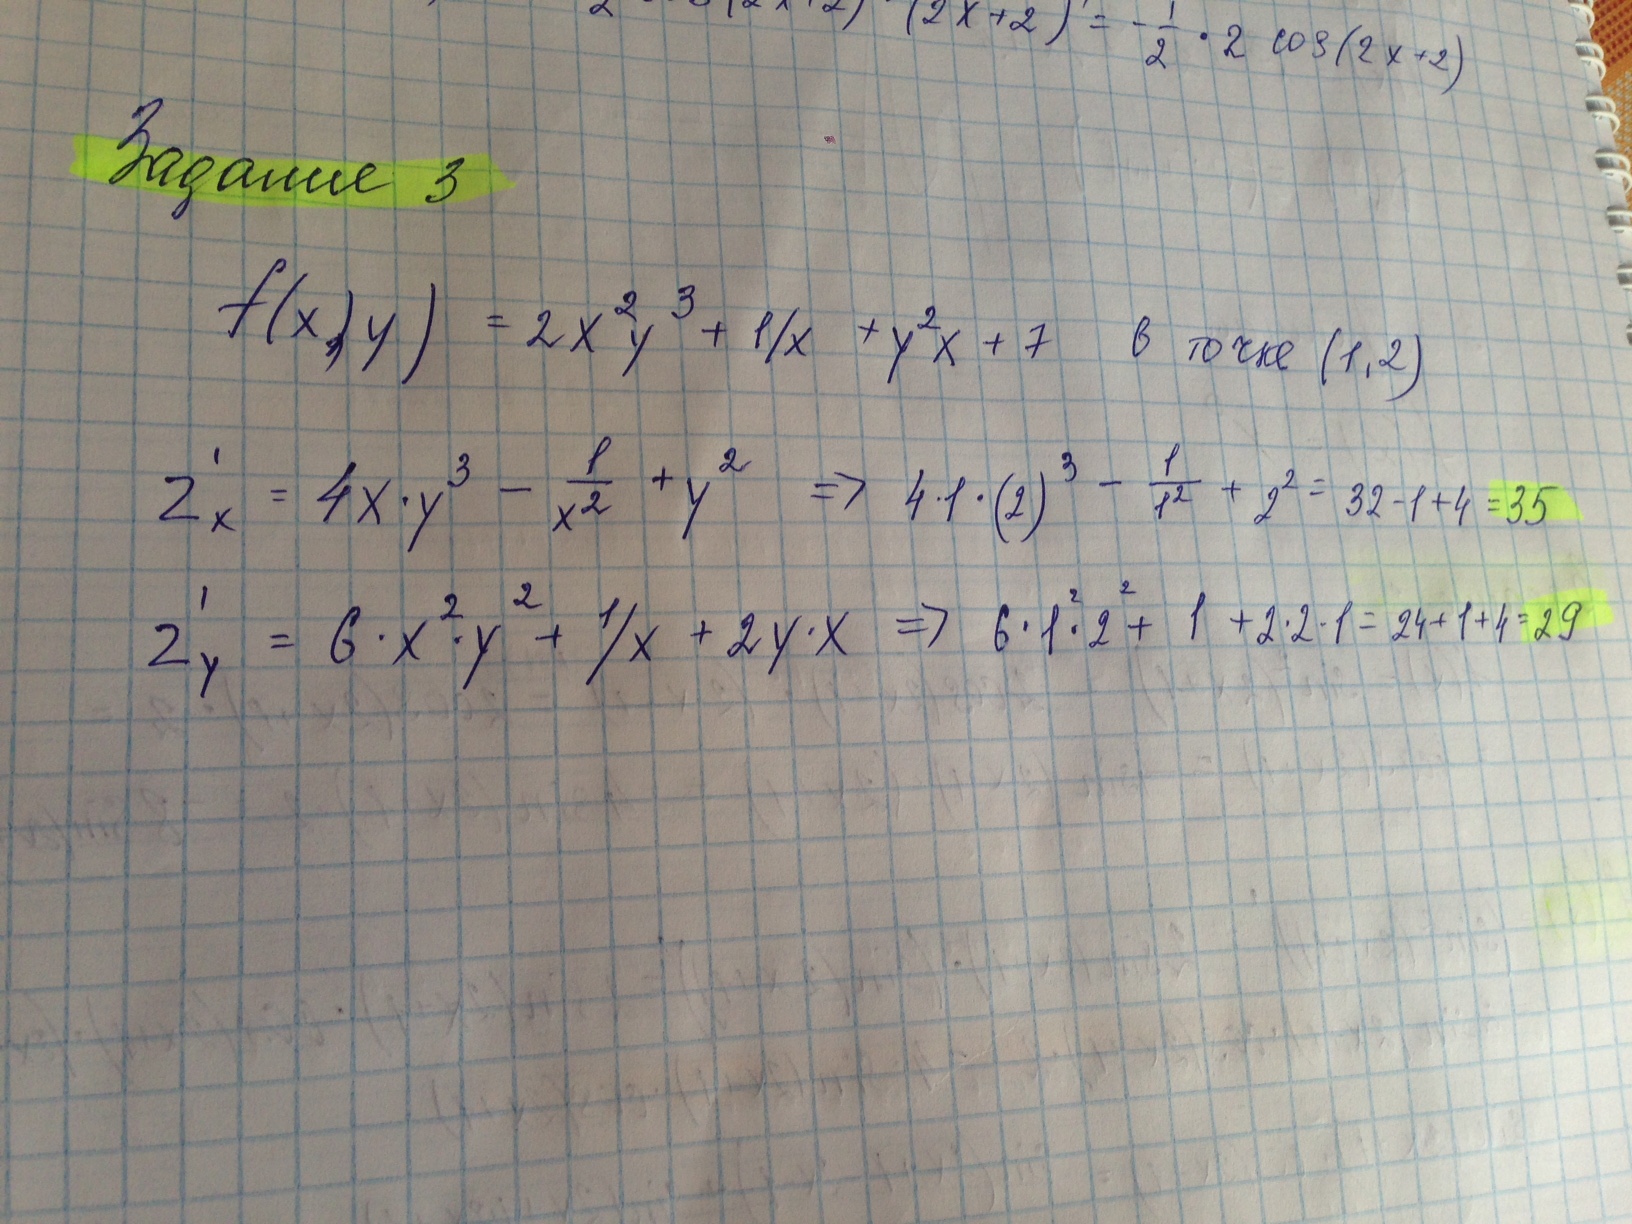 2 cos(2x+2)·(2x+2)' = -1/2 · 2 cos(2x+2)
Задание 3
f(x,y) = 2x²y³ + 1/x + y²x + 7 в точке (1,2)
Z'x = 4x·y³ - 1/x² + y² => 4·1·(2)³ - 1/1² + 2² = 32-1+4 = 35
Z'y = 6·x²·y² + 1/x + 2y·x => 6·1²·2² + 1 + 2·2·1 = 24+1+4 = 29